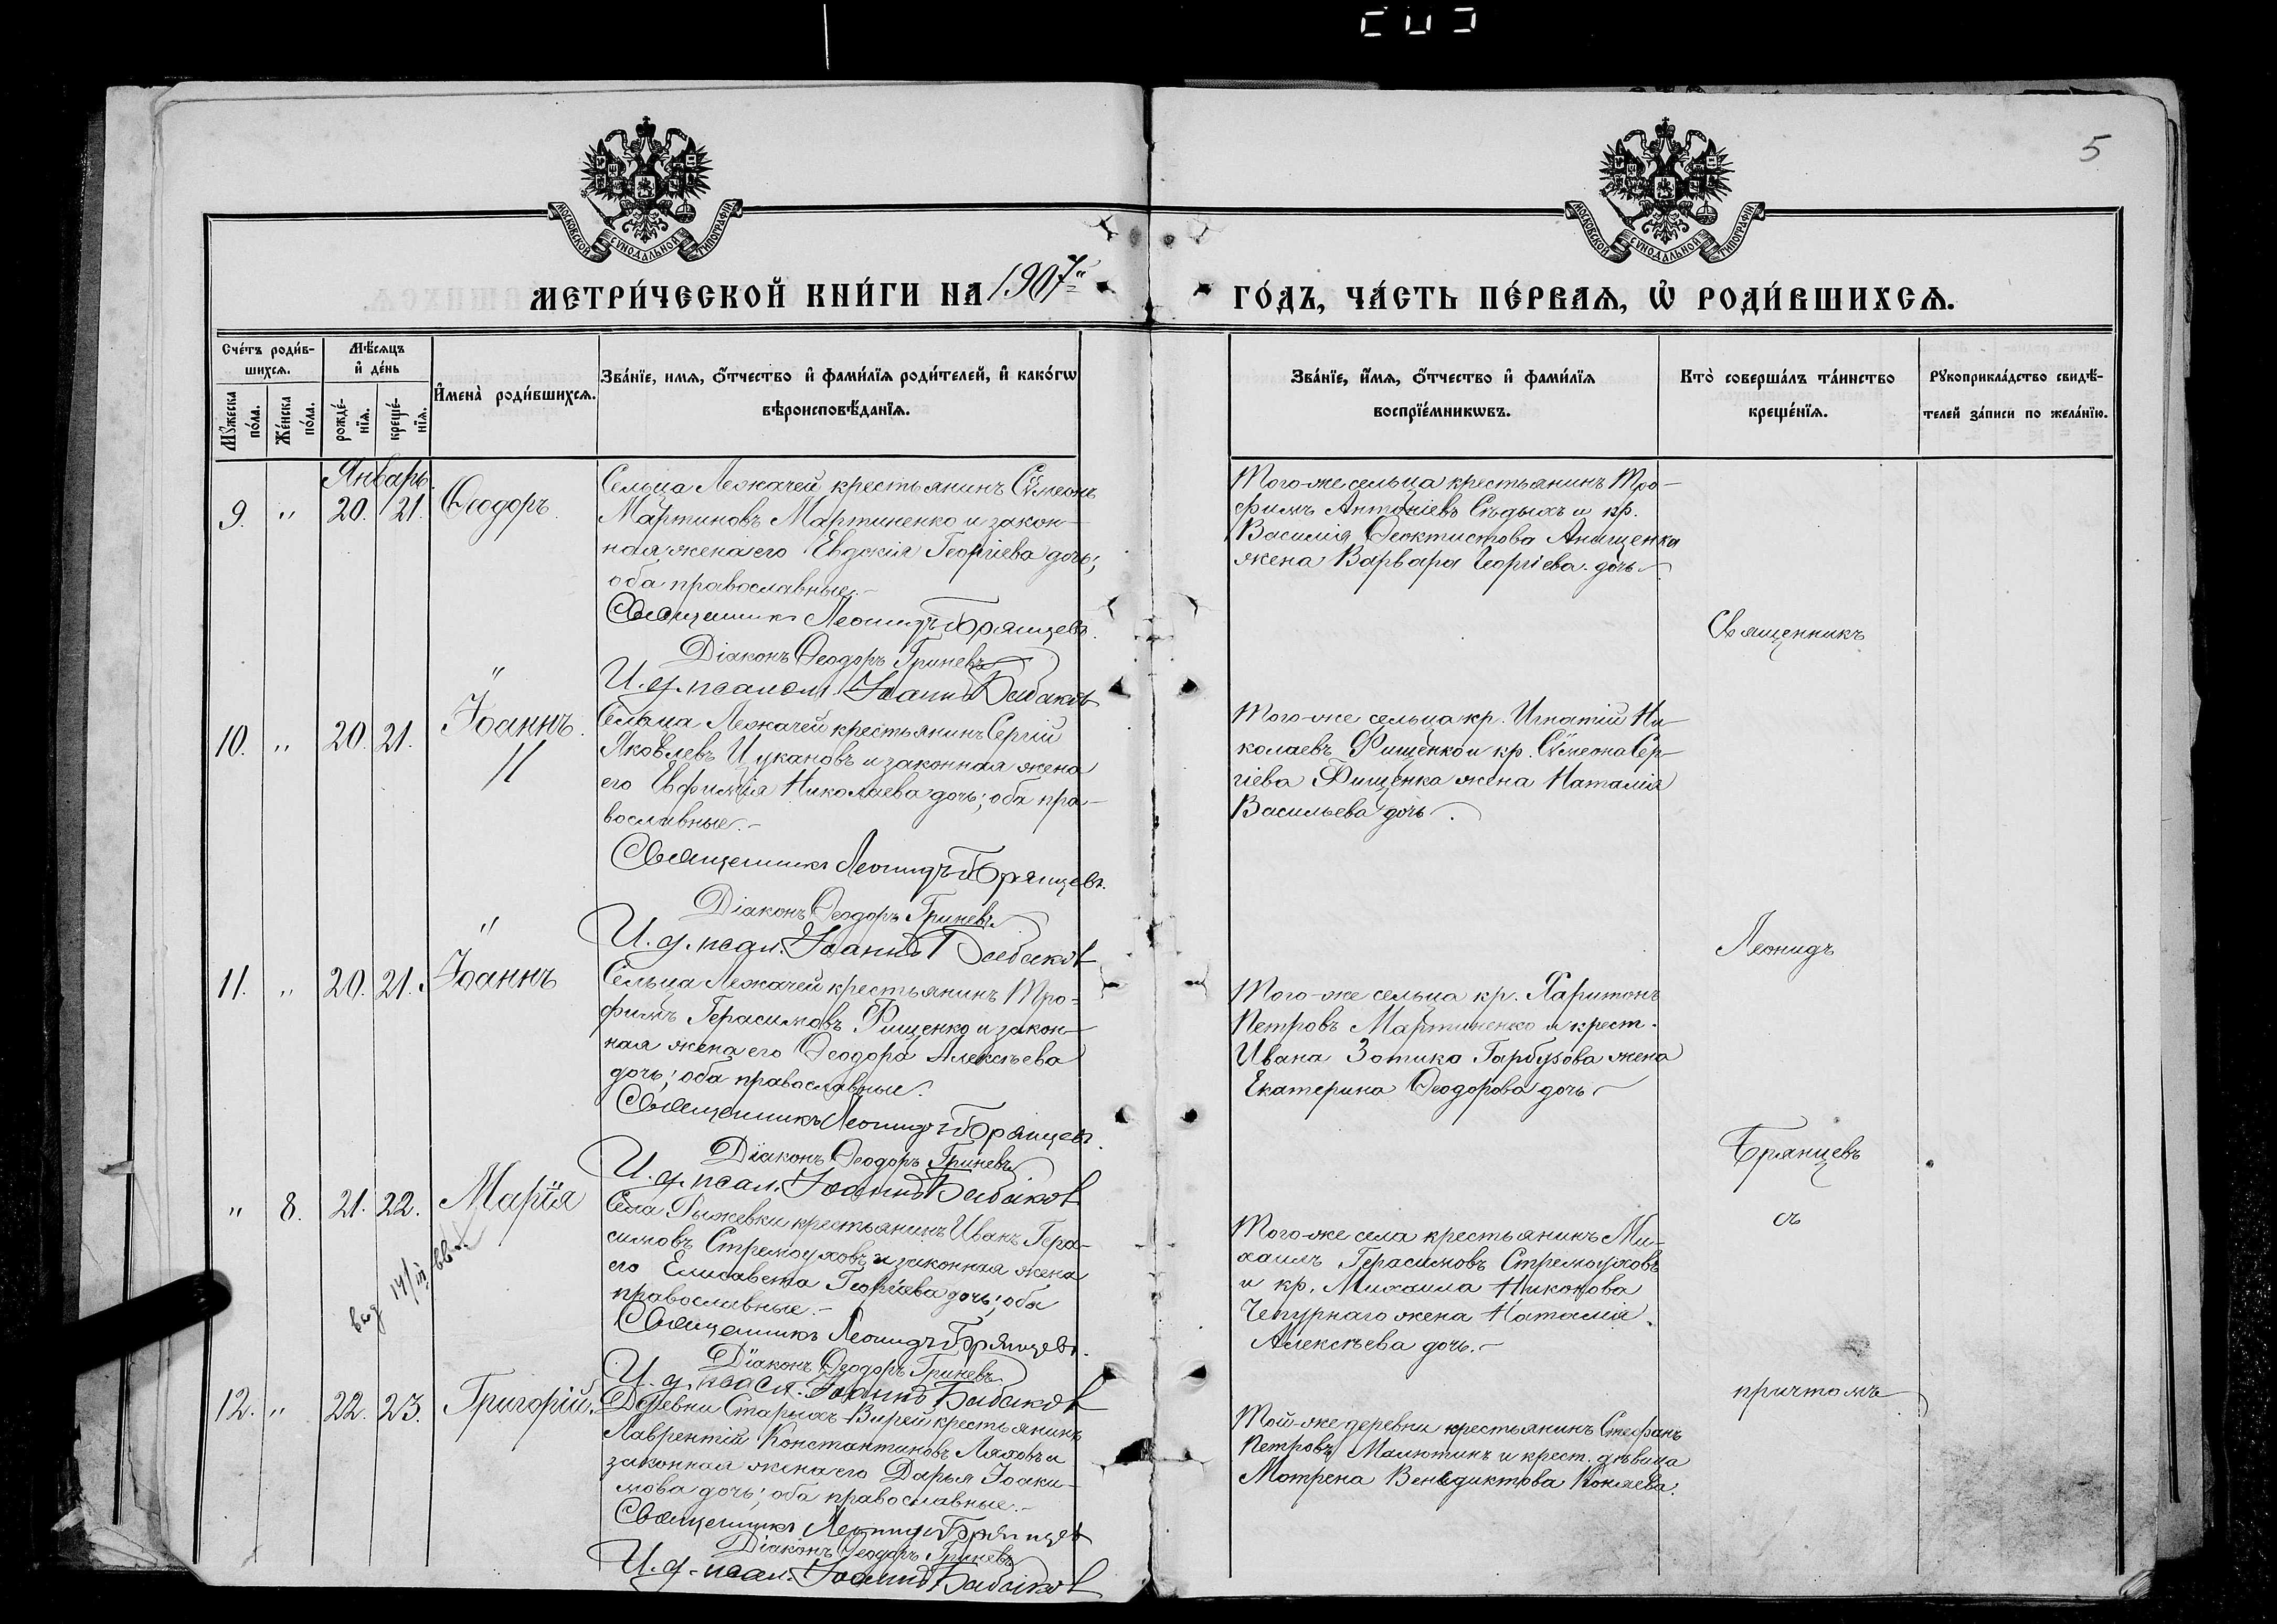 5
МОСКОВСКОЙ СѴНОДАЛЬНОЙ ТИПОГРАФІИ
МОСКОВСКОЙ СѴНОДАЛЬНОЙ ТИПОГРАФІИ
МЕТРИ́ЧЕСКОЙ КНИ́ГИ НА 1907й
ГО́ДЪ, ЧА́СТЬ ПЕ́РВАѦ, Ѡ҆ РОДИ́ВШИХСѦ.
Сче́тъ роди́в-
шихсѧ.
Мѣ́сѧцъ
и҆ де́нь
Мꙋ́жеска
по́ла.
Же́нска
по́ла.
рожде́-
нїѧ.
креще́-
нїѧ.
И҆мена̀ роди́вшихсѧ.
Зва́нїе, имѧ, ѻ҆́тчество и҆ фами́лїѧ роди́телей, и҆ како́гѡ
вѣроисповѣ́данїѧ.
Зва́нїе, и҆́мѧ, ѻ҆́тчество и҆ фами́лїѧ
воспрїе́мникѡвъ.
Кто̀ соверша́лъ та́инство
креще́нїѧ.
Рꙋкоприкла́дство свидѣ́-
телей за́писи по жела́нїю.
Январь.
9. " 20. 21. Ѳеодоръ.
Сельца Лежачей крестьянинъ Сѷмеонъ
Мартиновъ Мартиненко и закон-
ная жена его Евдокія Георгіева дочь;
оба православные.-
Священникъ Леонидъ Брянцевъ.
Діаконъ Ѳеодоръ Гриневъ
И. д. псалом. Іоаннъ Бабаковъ
Того-же сельца крестьянинъ Тро-
фимъ Антоніевъ Сѣдыхъ и кр.
Василія Ѳеоктистова Анищенка
жена Варвара Георгіева дочь
"
10. " 20. 21. Іоаннъ.
//
Сельца Лежачей крестьянинъ Сергій
Яковлевъ Цукановъ и законная жена
его Евфимія Николаева дочь; оба пра-
вославные.-
Священникъ Леонидъ Брянцевъ.
Діаконъ Ѳеодоръ Гриневъ
И. д. псал. Іоаннъ Бабаковъ
Того-же сельца кр. Игнатій Ни-
колаевъ Фищенко и кр. Сѷмеона Сер-
гіева Фищенка жена Наталія
Васильева дочь.
"
11. " 20. 21. Іоаннъ
Сельца Лежачей крестьянинъ Тро-
фимъ Герасимовъ Фищенко и закон-
ная жена его Ѳеодора Алексѣева
дочь; оба православные.
Священникъ Леонидъ Брянцевъ.
Діаконъ Ѳеодоръ Гриневъ
И. д. псал. Іоаннъ Бабаковъ
Того-же сельца кр. Харитонъ
Петровъ Мартиненко и крест.
Ивана Зотика Гарбузова жена
Екатерина Ѳеодорова дочь
" 8. 21. 22. Марія
Села Рыжевки крестьянинъ Иванъ Гера-
симовъ Стремоуховъ и законная жена
его Елисавета Георгіева дочь; оба
православные.-
Священникъ Леонидъ Брянцевъ.
Діаконъ Ѳеодоръ Гриневъ
И. д. псал. Іоаннъ Бабаковъ
Того-же села крестьянинъ Ми-
хаилъ Герасимовъ Стремоуховъ
и кр. Михаила Никонова
Чепурнаго жена Наталія
Алексѣева дочь.-
12. " 22. 23. Григорій.
Деревни Старыхъ-Вирей крестьянинъ
Лаврентій Константиновъ Ляховъ и
законная жена его Дарья Іоаки-
мова дочь; оба православные.-
Священникъ Леонидъ Брянцевъ
Діаконъ Ѳеодоръ Гриневъ
И. д. псал. Іоаннъ Бабаковъ
Той-же деревни крестьянинъ Стефанъ
Петровъ Малютинъ и крест. дѣвица
Мотрена Венедиктова Коняева.
Священникъ
Леонидъ
Брянцевъ
съ
причтомъ